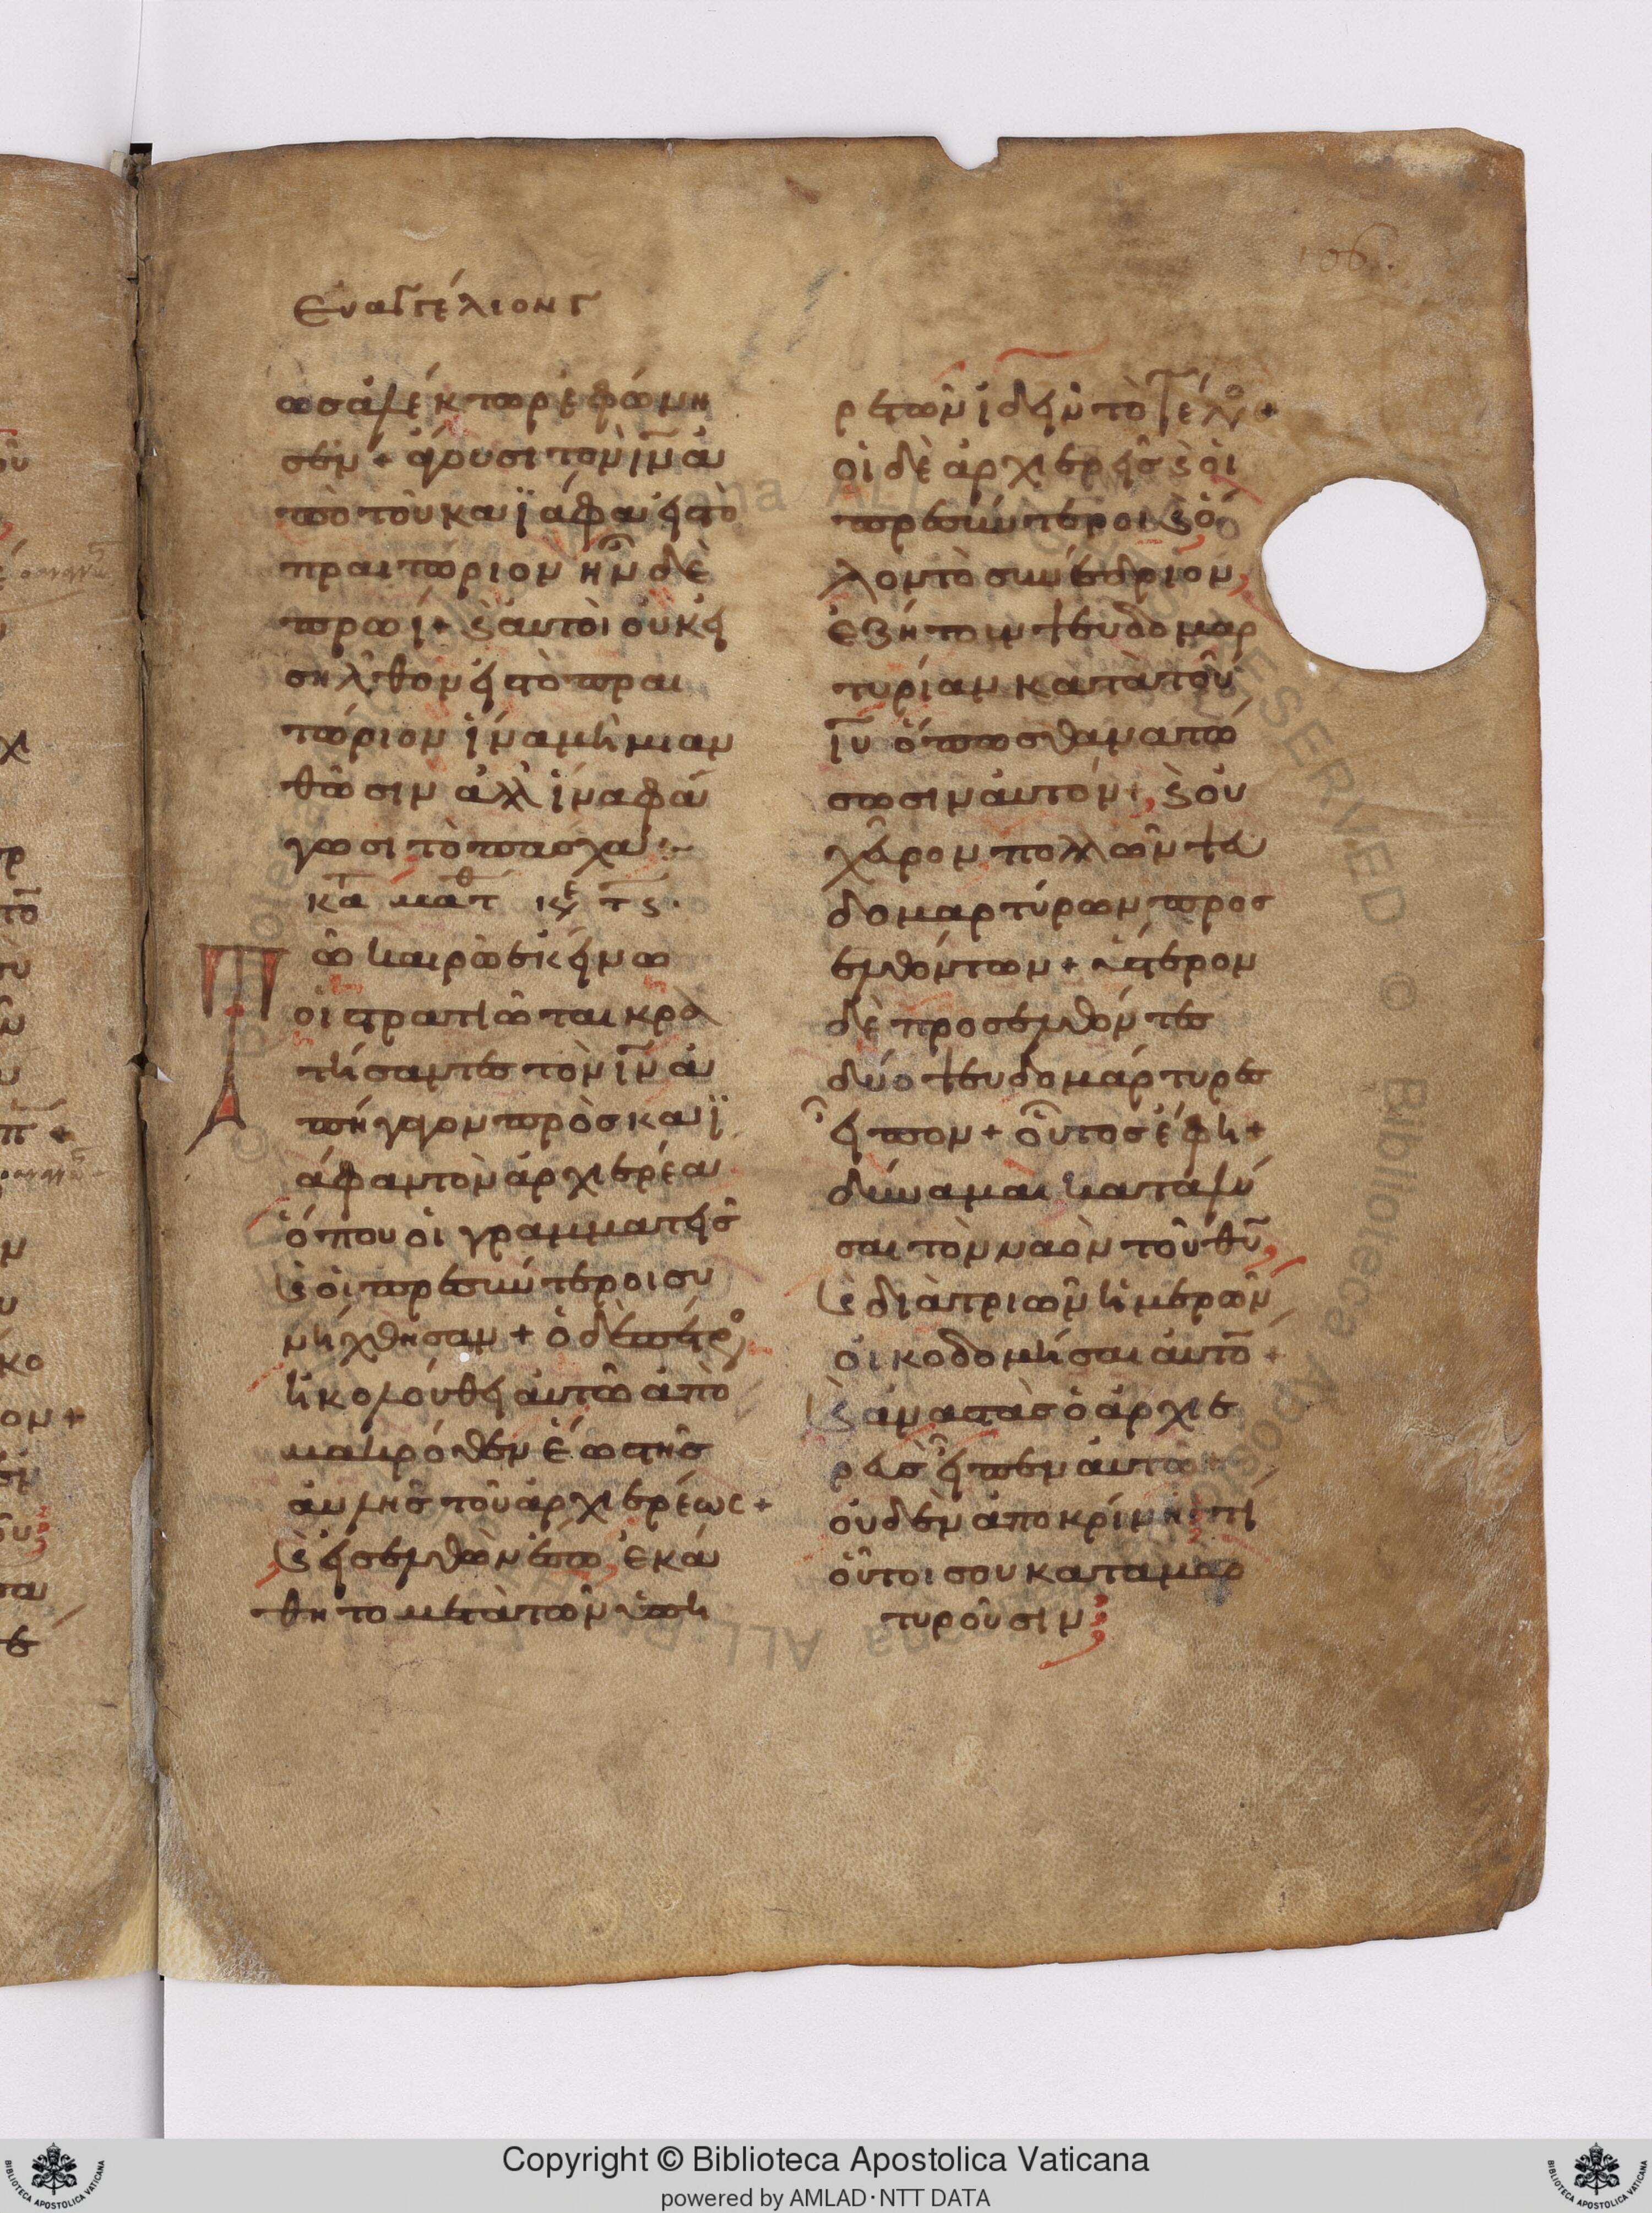 106.
Εὐαγγέλιον Γ
ωσ ἀλέκτωρ ἐφώνη
σεν + ἄγουσι τὸν ἰν ἀ
πὸ τοῦ καϊάφα εἰς τὸ
πραιτώριον ἦν δὲ
πρωί + ϗ αὐτοὶ οὐκ εἰ
σῆλθον εἰς τὸ πραι
τώριον ἵνα μὴ μιαν
θῶσιν ἀλλ' ἵνα φά
γωσι τὸ πάσχα
κατ ματθ
Τῶ καιρῶ ἐκείνω
οἱ στρατιῶται κρα
τήσαντες τὸν ἰν ἀ
πήγαγον πρὸς καϊ
άφαν τὸν ἀρχιερέα
ὅπου οἱ γραμματεῖς
ϗ οἱ πρεσβύτεροι συ
νήχθησαν + ὁ δὲ πέτρος
ἠκολούθει αὐτῶ ἀπὸ
μακρόθεν ἕως τῆς
αὐλῆς τοῦ ἀρχιερέως +
ϗ εἰσελθὼν ἔσω, ἐκά
θητο μετὰ τῶν ὑπη
ρετῶν ἰδεῖν τὸ τέλος +
οἱ δὲ ἀρχιερεῖς ϗ οἱ
πρεσβύτεροι ϗ ὅ
λον τὸ συνέδριον,
ἐζήτουν ψευδομαρ
τυρίαν κατὰ τοῦ
ἰυ ὅπως θανατώ
σωσιν αὐτόν, ϗ οὐ
χ εὗρον πολλῶν ψευ
δομαρτύρων προσ
ελθόντων + ὕστερον
δὲ προσελθόντες
δύο ψευδομάρτυρες
εἶπον + οὗτος ἔφη +
δύναμαι καταλῦ
σαι τὸν ναὸν τοῦ θυ,
ϗ διὰ τριῶν ἡμερῶν
οἰκοδομῆσαι αὐτὸν +
ϗ ἀναστὰς ὁ ἀρχιε
ρεὺς εἶπεν αὐτῶ
οὐδὲν ἀποκρίνη τί
οὗτοι σου καταμαρ
τυροῦσιν;
Copyright © Biblioteca Apostolica Vaticana
powered by AMLAD·NTT DATA